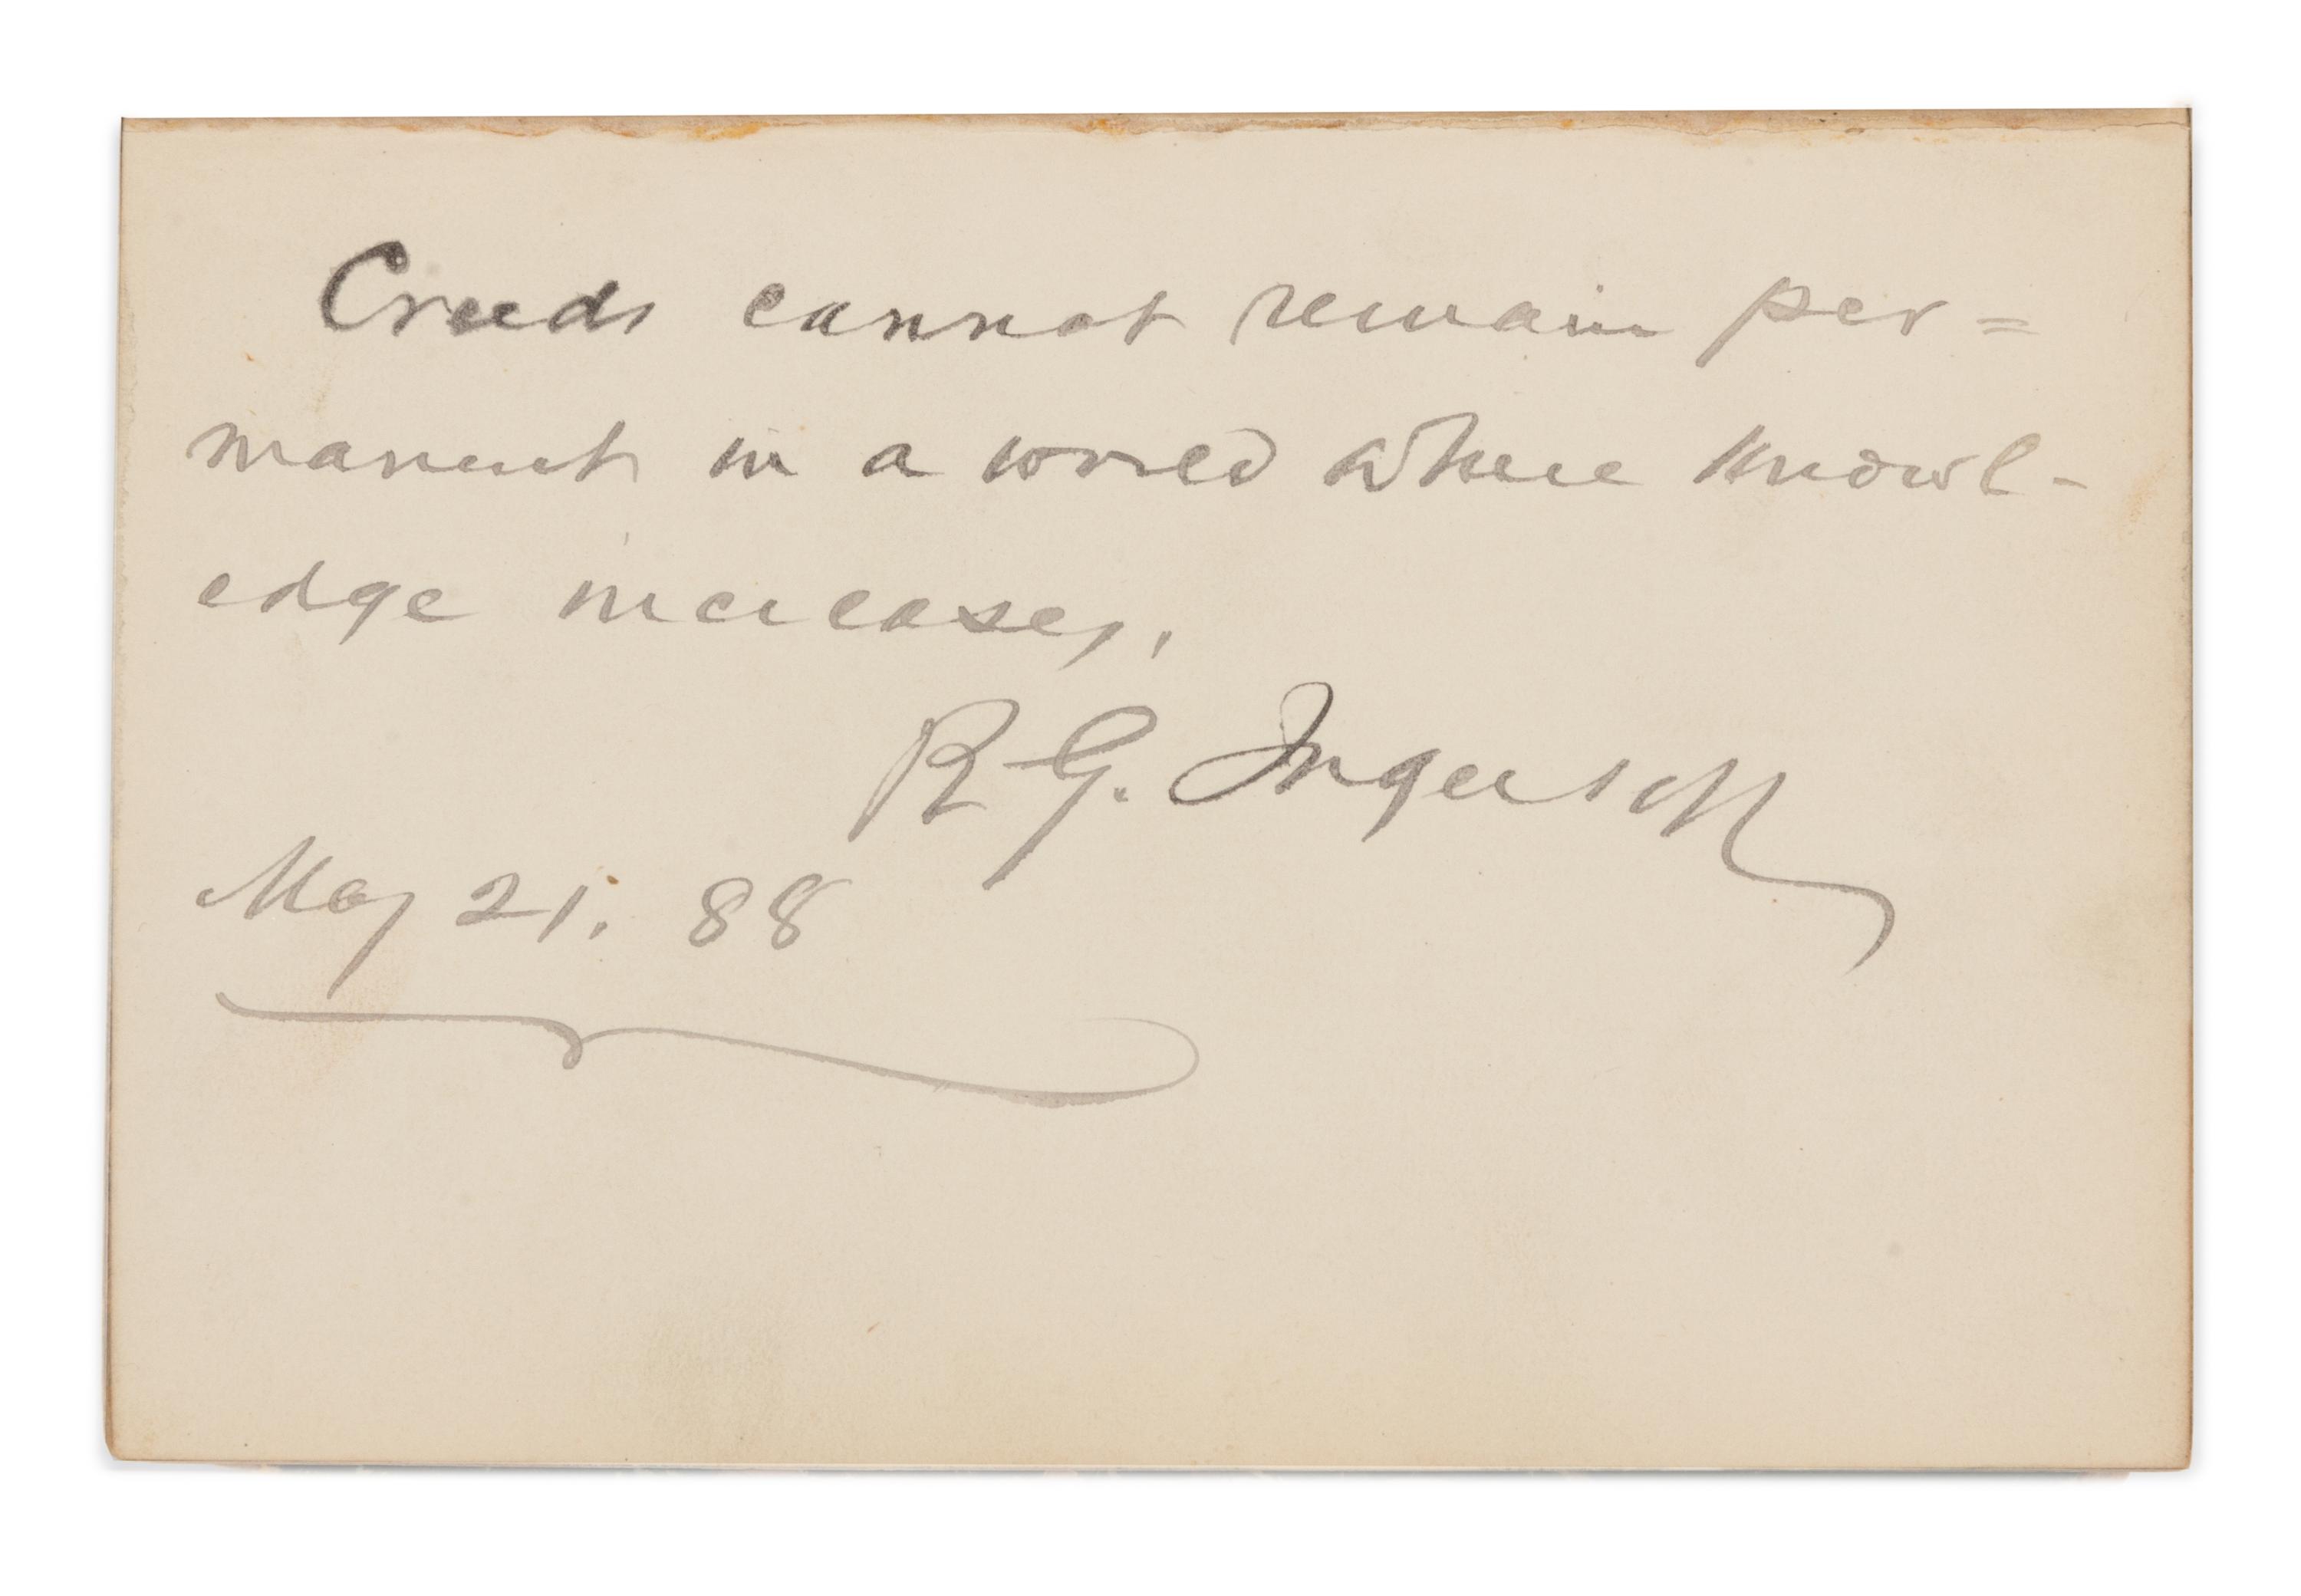 Creeds cannot remain per=
manent in a world where knowl-
edge increases.
R. G. Ingersoll
May 21. 88